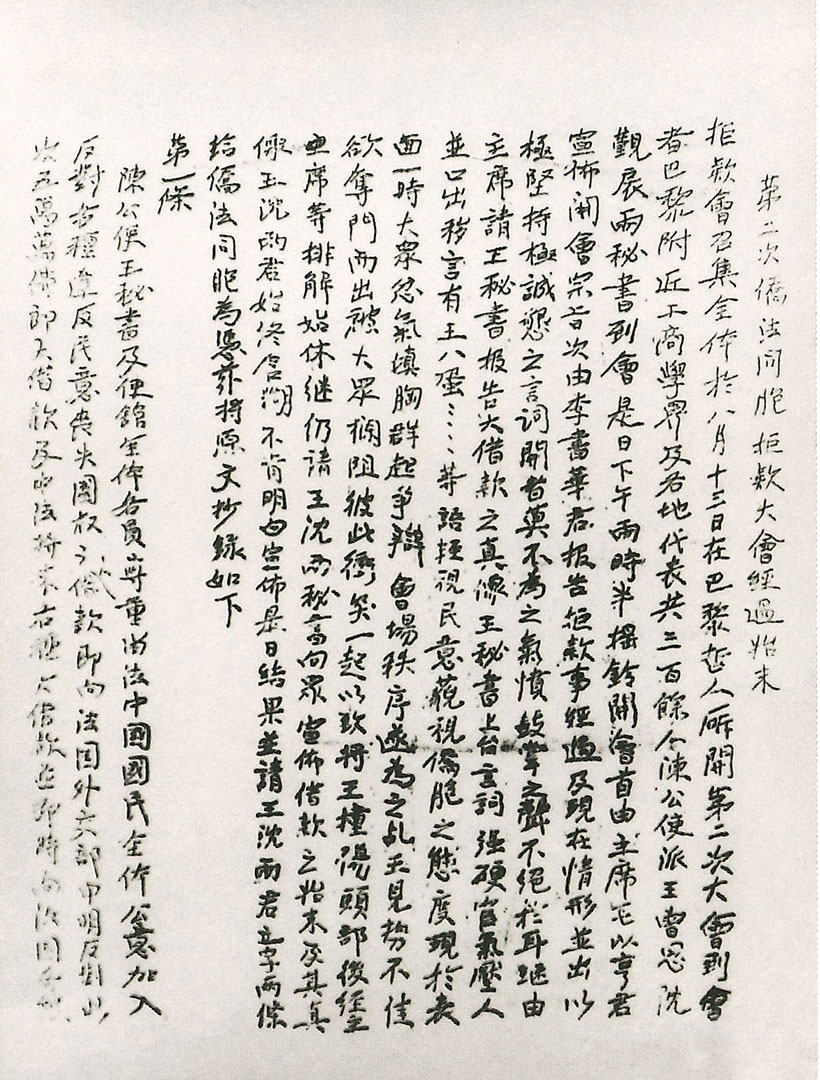 第二次僑法同胞拒款大會經過始末
拒款會召集全体於八月十三日在巴黎哲人廳開第二次大會到會
者巴黎附近工商學界及各地代表共三百餘人陳公使派王曾思沈
觀扆兩秘書到會是日下午兩時半搖鈴開會首由主席 以亨君
宣佈開會宗旨次由李書華君报告拒款事經過及現在情形並出以
極堅持極誠懇之言詞聞者莫不為之氣憤鼓掌之聲不絕於耳继由
主席請王秘書报告大借款之真像王秘書上台言詞强硬官氣壓人
並口出穢言有王八蛋……等語輕視民意藐視僑胞之態度現於表
面一時大眾忿氣填胸群起爭辯會場秩序遂為之乱王見势不佳
欲奪門而出讓大眾攔阻彼此衝突一起以致将王撞傷頭部後經主
席等排解始休继仍請王沈兩秘書向眾宣佈借款之始末及其真
像王沈兩君始终含糊不肯明白宣佈是日结果並請王沈兩君立字兩條
给僑法同胞為憑茲将原文抄錄如下
第一條
陳公使王秘書及使舘全体各員尊重留法中國國民全体公意加入
反對拉種違反民意喪失國权之借款即向法国外交部申明反對此
次五萬萬佛郎大借款及 法将来右種大借款並即時向法国